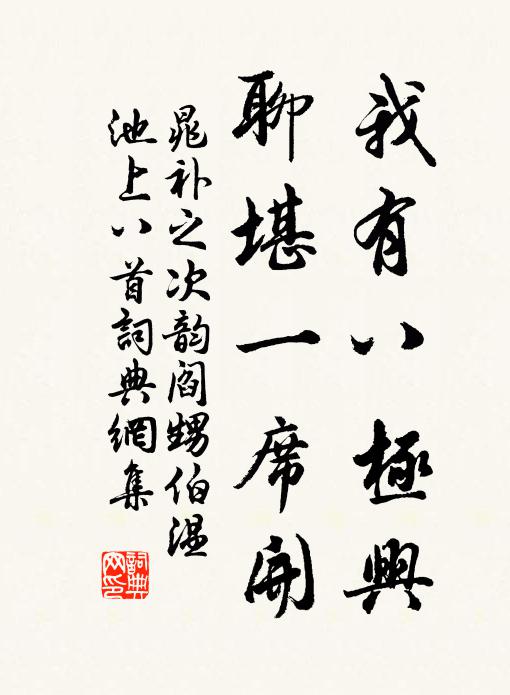 我有八極興
聊堪一席開
晁补之次韵閻甥伯温
池上八首詞典網集
詞典网印